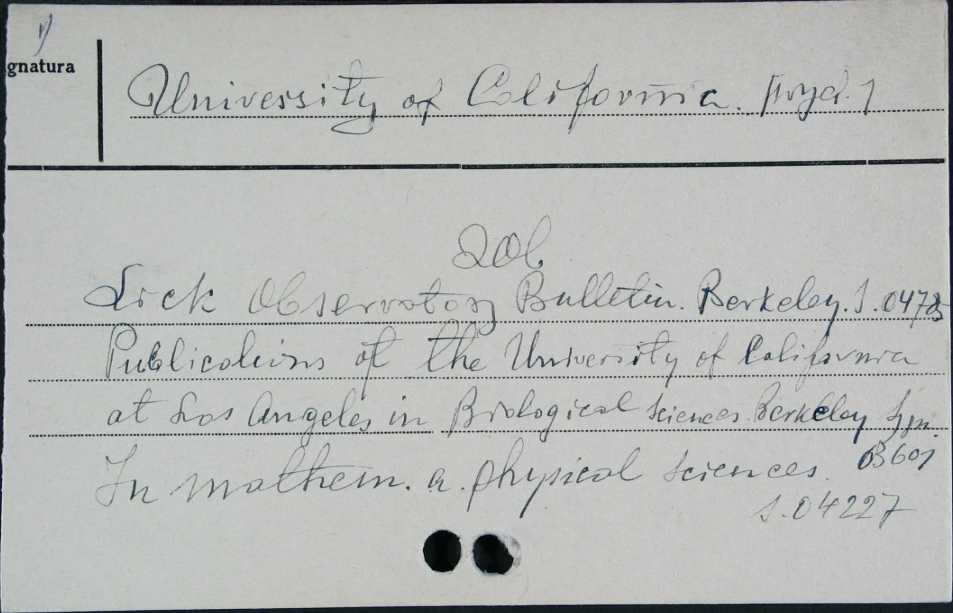 1)
gnatura
University of California. [wyd.]
Zob
Lick Observatory Bulletin. Berkeley. S.04725
Publications of the University of California
at Los Angeles in Biological sciences. Berkeley
B601
In mathem. a. physical sciences.
S.04227